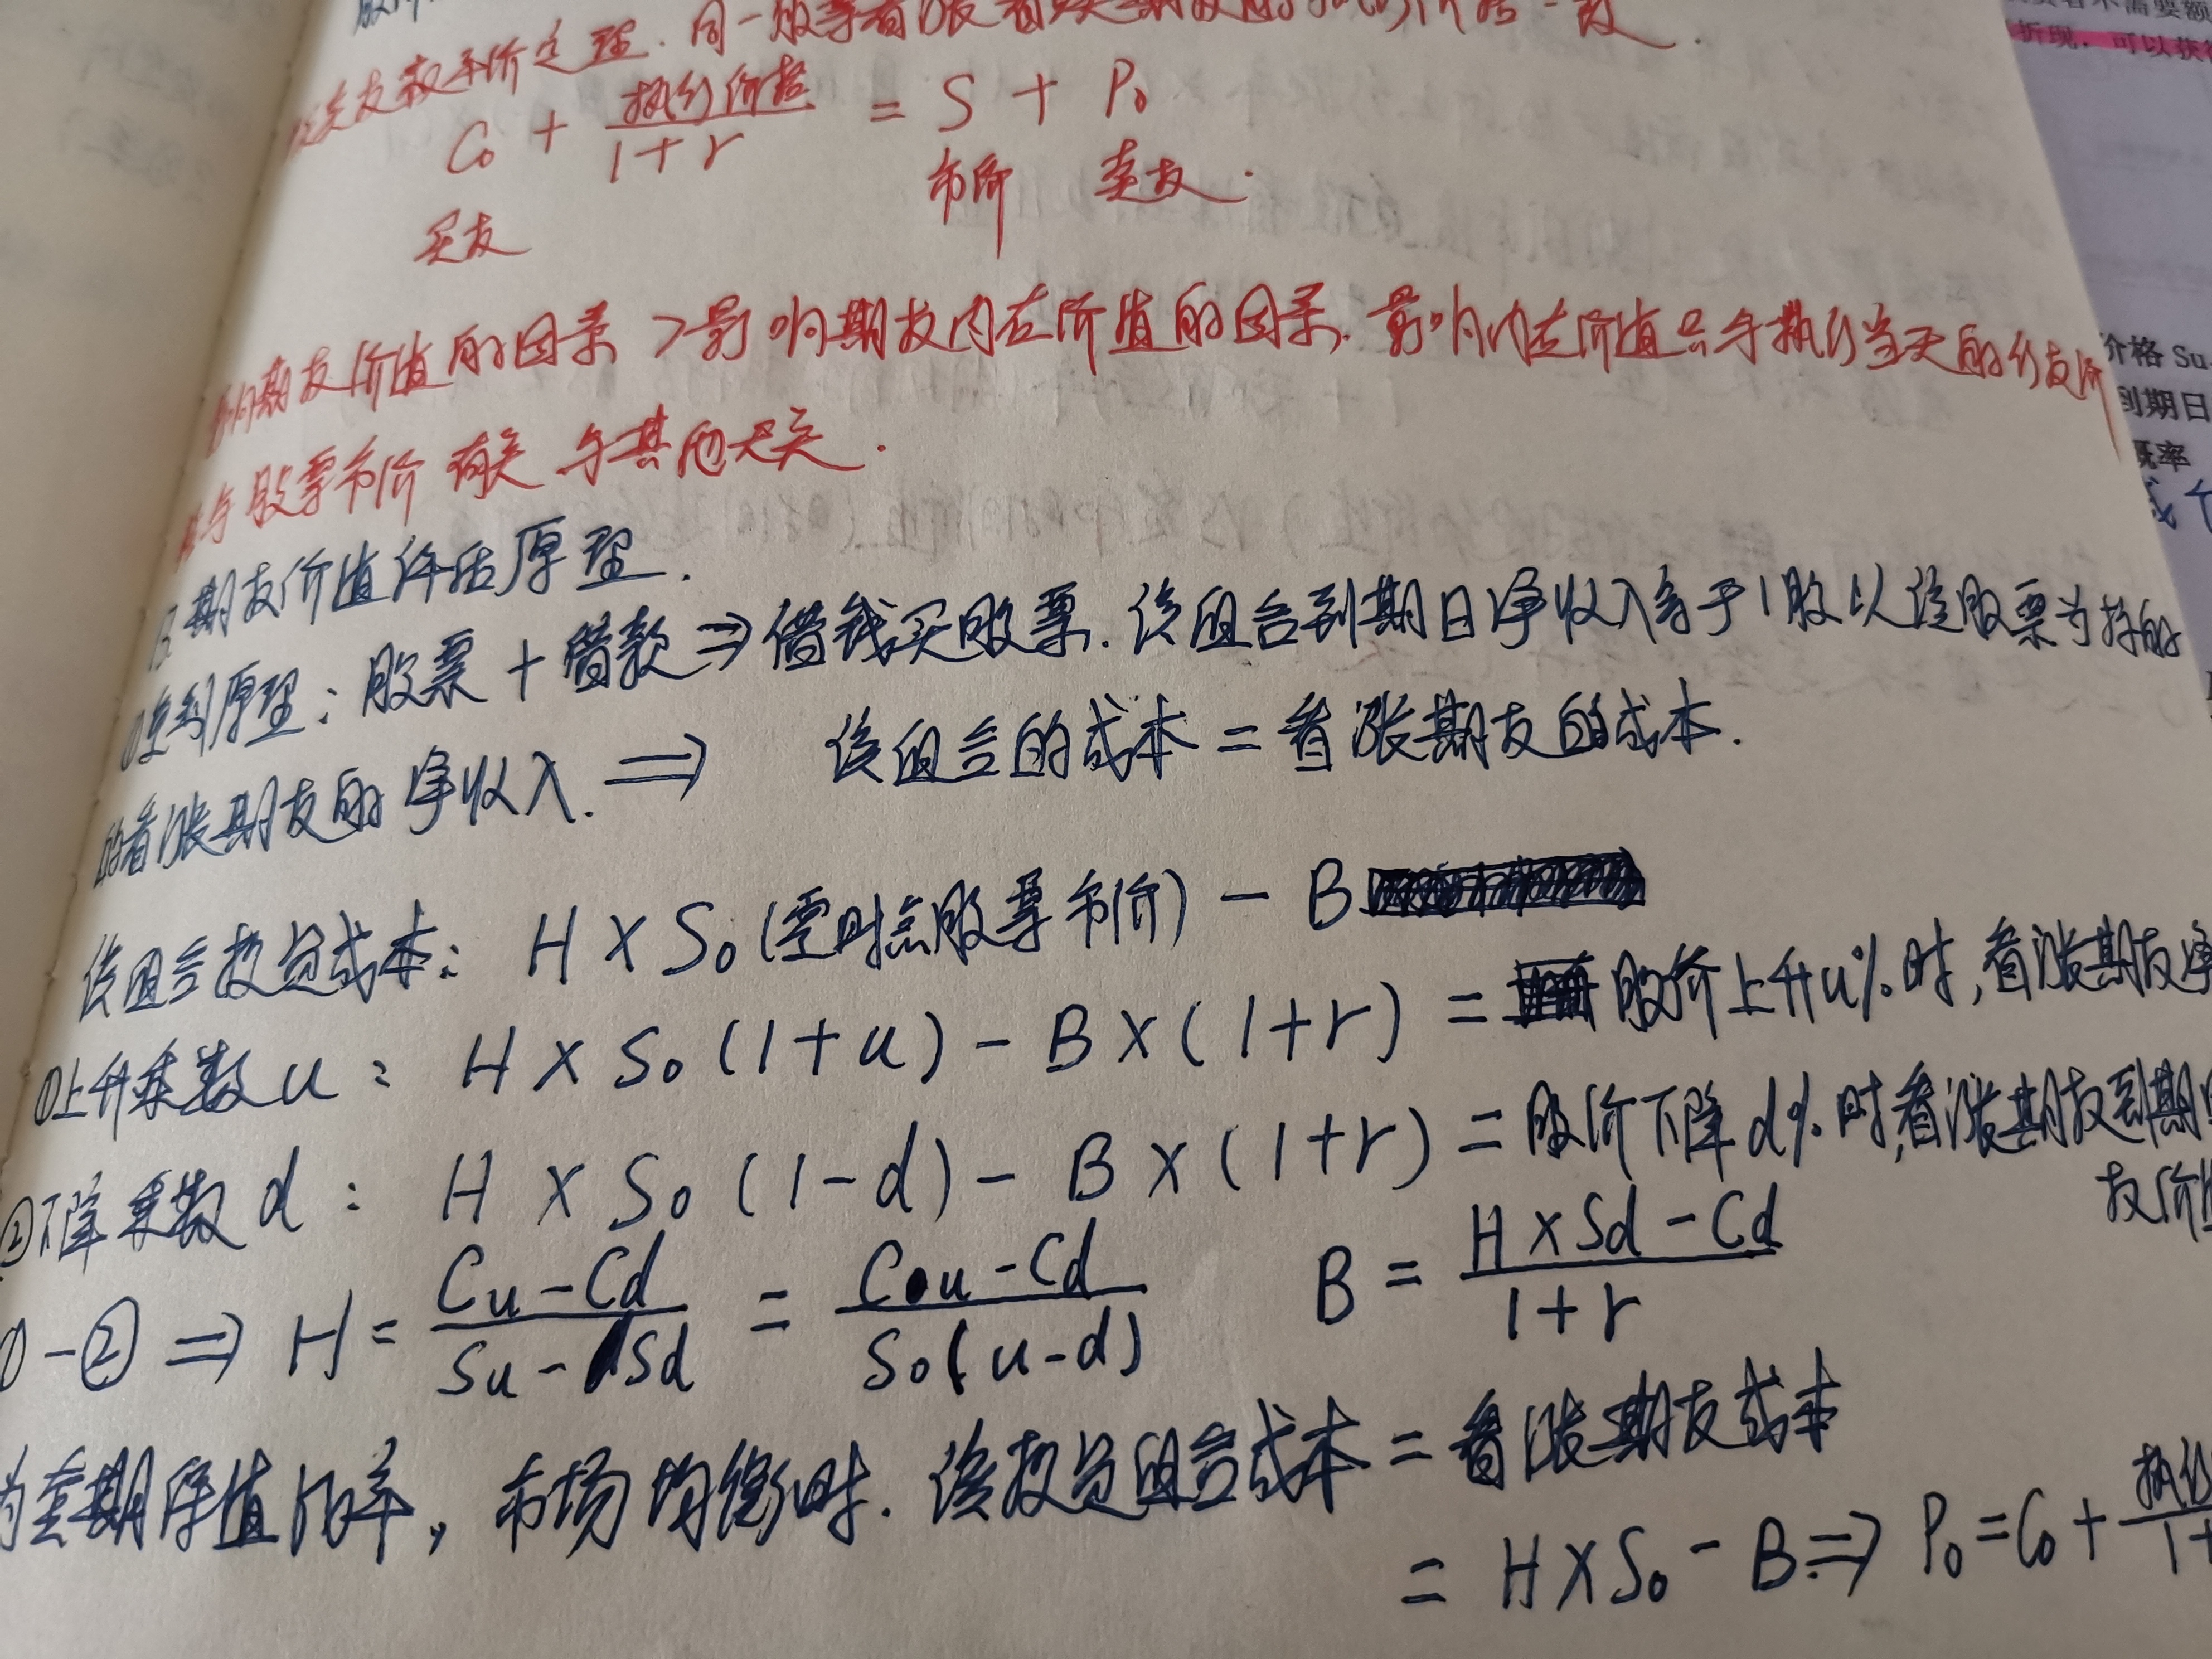 平价定理.同一股票看涨看跌期权的执行价格一致.
C₀ + 执行价格/(1+r) = S + P₀
买权 市价 卖权.
影响期权价值的因素 > 影响期权内在价值的因素. 影响内在价值只与执行当天的行权价
与股票市价有关 与其他无关.
期权价值评估原理.
①复制原理:股票+借款⇒借钱买股票.该组合到期日净收入等于1股以该股票为标的
的看涨期权的净收入.⇒ 该组合的成本=看涨期权的成本.
该组合投资成本: H×S₀(零时点股票市价)-B
①上升乘数u: H×S₀(1+u)-B×(1+r)=股价上升u%时,看涨期权净
②下降乘数d: H×S₀(1-d)-B×(1+r)=股价下降d%时,看涨期权到期
权价值
①-②⇒H=(Cu-Cd)/(Su-Sd)=(Cu-Cd)/(S₀(u-d)) B=(H×Sd-Cd)/(1+r)
市场均衡时.该投资组合成本=看涨期权成本
=H×S₀-B⇒P₀=C₀+
价格 Su
到期日
概率
折现,可以获
不需要额